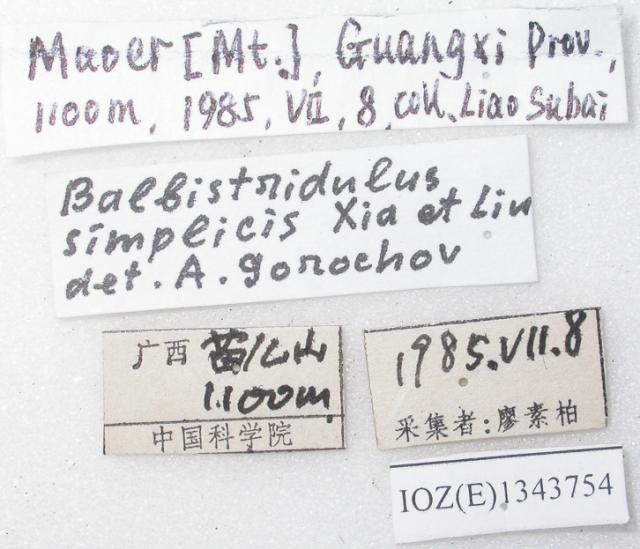 Maoer [Mt.], Guangxi Prov.,
1100m, 1985, VII, 8, coll. Liao Subai
Balbistridulus
simplicis Xia et Liu
det. A. Gorochov
广西 苗儿山
1.100m
中国科学院
1985.VII.8
采集者:廖素柏
IOZ(E)1343754